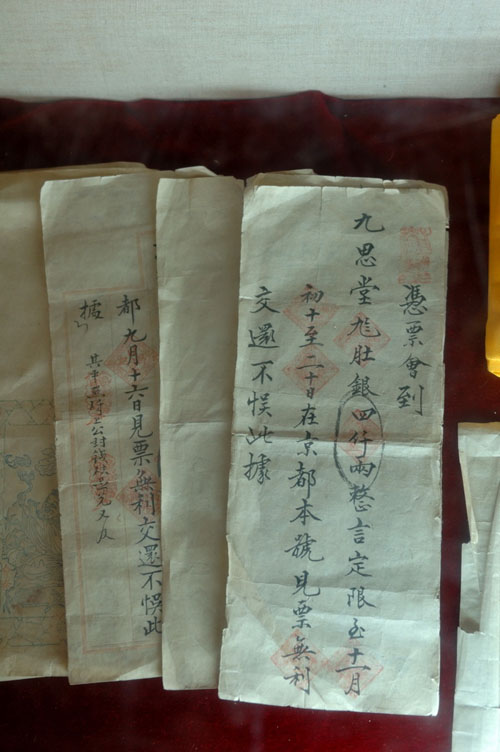 憑票會到
九思堂 足紋銀四仟兩整言定限至十一月
初十至二十日在京都本號見票無利
交還不悞此據
都九月十六日見票無利交還不悞此
據